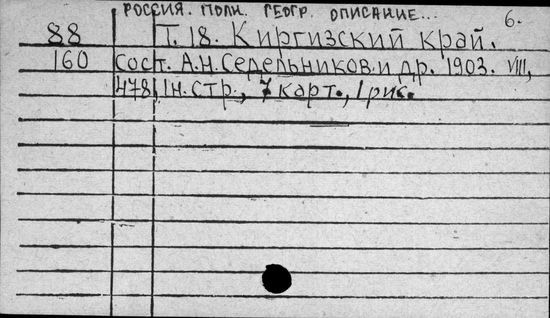 РОССИЯ. ПОЛН. ГЕОГР. ОПИСАНИЕ...
6.
88 Т. 18. Киргизский край.
160 сост. А.Н. Седельников и др. 1903. VIII,
478, 1н. стр., 7 карт., 1 рис.